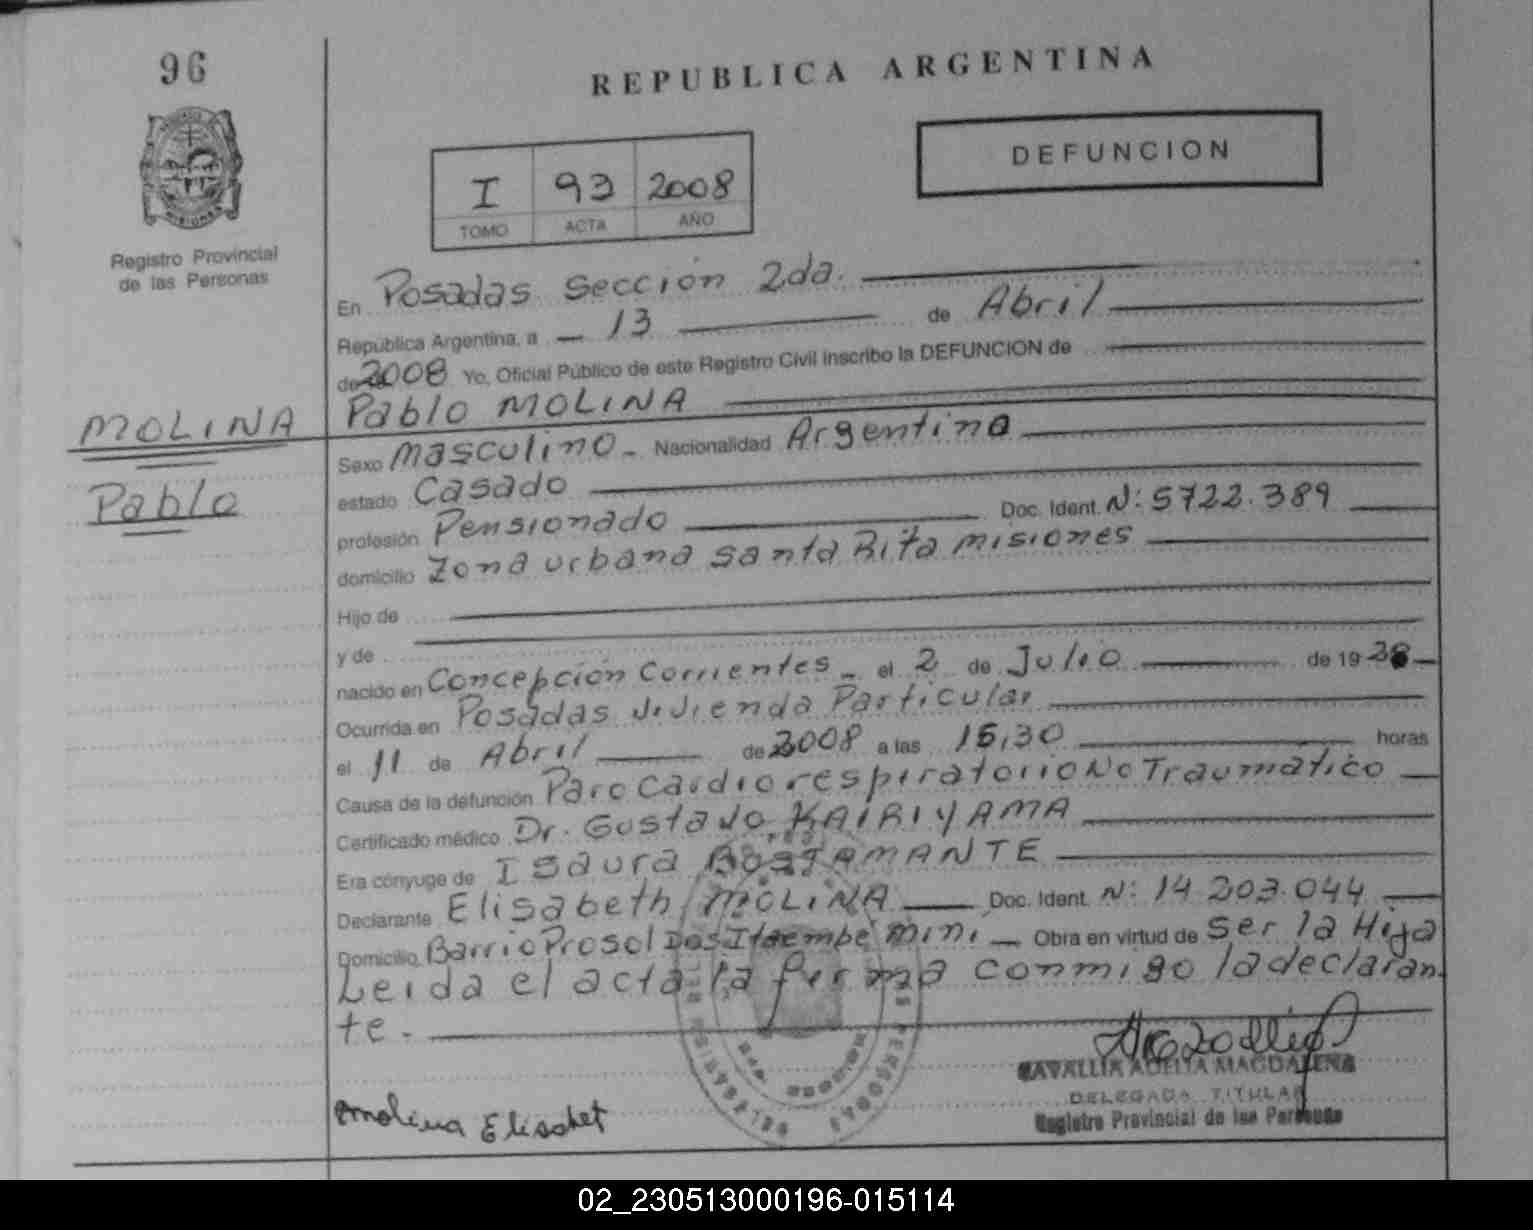 96
REPUBLICA ARGENTINA
DEFUNCION
I 93 2008
TOMO ACTA AÑO
MISIONES
Registro Provincial
de las Personas
MOLINA
Pablo
En Posadas Sección 2da.
República Argentina, a 13 de Abril
de 2008 Yo, Oficial Público de este Registro Civil inscribo la DEFUNCION de
Pablo MOLINA
Sexo Masculino - Nacionalidad Argentina
estado Casado
profesión Pensionado Doc. Ident. N: 5722.389
domicilio Zona urbana Santa Rita Misiones
Hijo de
y de
nacido en Concepción Corrientes - el 2 de Julio de 19
Ocurrida en Posadas Vivienda Particular
el 11 de Abril de 2008 a las 15,30 horas
Causa de la defunción Paro Cardiorespiratorio No Traumático
Certificado médico Dr. Gustavo KAIRIYAMA
Era cónyuge de Isaura BOSTAMANTE
Declarante Elisabeth MOLINA Doc. Ident. N: 14.203.044
Domicilio Barrio Prosol Dos Itaembé Mini - Obra en virtud de Ser la Hija
Leida el acta la firma conmigo la declaran-
te.
CAVALLIA ADELIA MAGDALENA
DELEGADA TITULAR
Registro Provincial de las Personas
Molina Elisabet
02_230513000196-015114